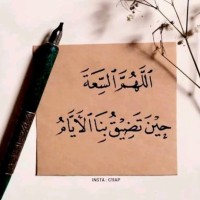 اَللَّهُمَّ السَّعَةَ
حِيْنَ تَضِيْقُ بِنَا الْأَيَّامُ
INSTA : CRAP